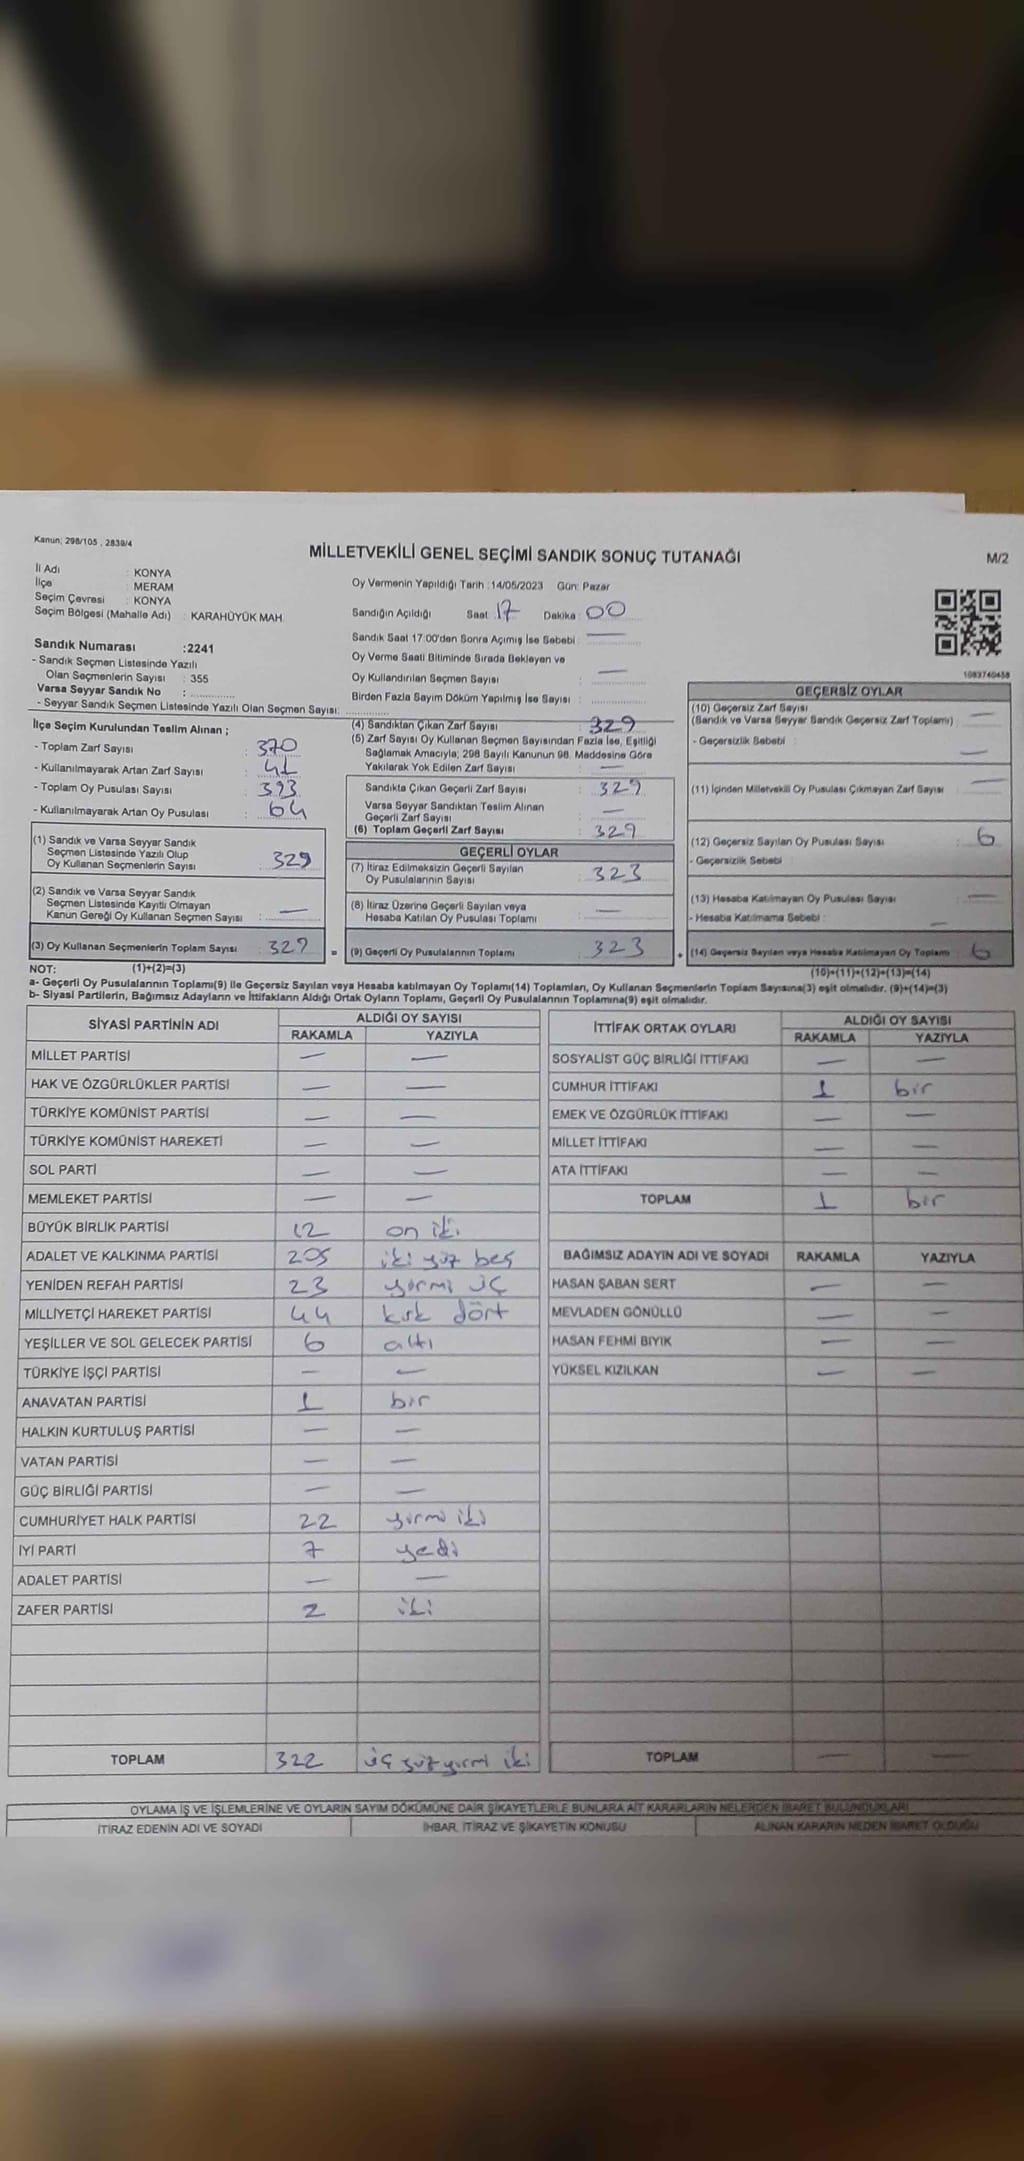 Kanun; 298/105 , 2839/4
MİLLETVEKİLİ GENEL SEÇİMİ SANDIK SONUÇ TUTANAĞI
M/2
İl Adı : KONYA
İlçe : MERAM
Seçim Çevresi : KONYA
Seçim Bölgesi (Mahalle Adı) : KARAHÜYÜK MAH.
Oy Vermenin Yapıldığı Tarih :14/05/2023 Gün: Pazar
Sandığın Açıldığı Saat 17 Dakika : 00
Sandık Saat 17:00'den Sonra Açımış İse Sebebi : —
Oy Verme Saati Bitiminde Sırada Bekleyen ve
Oy Kullandırılan Seçmen Sayısı : —
Birden Fazla Sayım Döküm Yapılmış İse Sayısı :
1083740458
Sandık Numarası :2241
- Sandık Seçmen Listesinde Yazılı
Olan Seçmenlerin Sayısı : 355
Varsa Seyyar Sandık No :
- Seyyar Sandık Seçmen Listesinde Yazılı Olan Seçmen Sayısı:
İlçe Seçim Kurulundan Teslim Alınan ;
- Toplam Zarf Sayısı : 370
- Kullanılmayarak Artan Zarf Sayısı : 41
- Toplam Oy Pusulası Sayısı : 393
- Kullanılmayarak Artan Oy Pusulası : 64
(1) Sandık ve Varsa Seyyar Sandık
Seçmen Listesinde Yazılı Olup
Oy Kullanan Seçmenlerin Sayısı : 329
(2) Sandık ve Varsa Seyyar Sandık
Seçmen Listesinde Kayıtlı Olmayan
Kanun Gereği Oy Kullanan Seçmen Sayısı : —
(3) Oy Kullanan Seçmenlerin Toplam Sayısı : 329 =
(4) Sandıktan Çıkan Zarf Sayısı : 329
(5) Zarf Sayısı Oy Kullanan Seçmen Sayısından Fazla İse, Eşitliği
Sağlamak Amacıyla; 298 Sayılı Kanunun 98. Maddesine Göre
Yakılarak Yok Edilen Zarf Sayısı : —
Sandıkta Çıkan Geçerli Zarf Sayısı : 329
Varsa Seyyar Sandıktan Teslim Alınan
Geçerli Zarf Sayısı : —
(6) Toplam Geçerli Zarf Sayısı : 329
GEÇERLİ OYLAR
(7) İtiraz Edilmeksizin Geçerli Sayılan
Oy Pusulalarının Sayısı : 323
(8) İtiraz Üzerine Geçerli Sayılan veya
Hesaba Katılan Oy Pusulası Toplamı : —
(9) Geçerli Oy Pusulalarının Toplamı : 323 +
GEÇERSİZ OYLAR
(10) Geçersiz Zarf Sayısı
(Sandık ve Varsa Seyyar Sandık Geçersiz Zarf Toplamı) : —
- Geçersizlik Sebebi : —
(11) İçinden Milletvekili Oy Pusulası Çıkmayan Zarf Sayısı : —
(12) Geçersiz Sayılan Oy Pusulası Sayısı : 6
- Geçersizlik Sebebi :
(13) Hesaba Katılmayan Oy Pusulası Sayısı : —
- Hesaba Katılmama Sebebi : —
(14) Geçersiz Sayılan veya Hesaba Katılmayan Oy Toplamı : 6
NOT: (1)+(2)=(3)
(10)+(11)+(12)+(13)=(14)
a- Geçerli Oy Pusulalarının Toplamı(9) ile Geçersiz Sayılan veya Hesaba katılmayan Oy Toplamı(14) Toplamları, Oy Kullanan Seçmenlerin Toplam Sayısına(3) eşit olmalıdır. (9)+(14)=(3)
b- Siyasi Partilerin, Bağımsız Adayların ve İttifakların Aldığı Ortak Oyların Toplamı, Geçerli Oy Pusulalarının Toplamına(9) eşit olmalıdır.
SİYASİ PARTİNİN ADI ALDIĞI OY SAYISI
RAKAMLA YAZIYLA
MİLLET PARTİSİ — —
HAK VE ÖZGÜRLÜKLER PARTİSİ — —
TÜRKİYE KOMÜNİST PARTİSİ — —
TÜRKİYE KOMÜNİST HAREKETİ — —
SOL PARTİ — —
MEMLEKET PARTİSİ — —
BÜYÜK BİRLİK PARTİSİ 12 on iki
ADALET VE KALKINMA PARTİSİ 205 iki yüz beş
YENİDEN REFAH PARTİSİ 23 yirmi üç
MİLLİYETÇİ HAREKET PARTİSİ 44 kırk dört
YEŞİLLER VE SOL GELECEK PARTİSİ 6 altı
TÜRKİYE İŞÇİ PARTİSİ — —
ANAVATAN PARTİSİ 1 bir
HALKIN KURTULUŞ PARTİSİ — —
VATAN PARTİSİ — —
GÜÇ BİRLİĞİ PARTİSİ — —
CUMHURİYET HALK PARTİSİ 22 yirmi iki
İYİ PARTİ 7 yedi
ADALET PARTİSİ — —
ZAFER PARTİSİ 2 iki
TOPLAM 322 üç yüz yirmi iki
İTTİFAK ORTAK OYLARI ALDIĞI OY SAYISI
RAKAMLA YAZIYLA
SOSYALİST GÜÇ BİRLİĞİ İTTİFAKI — —
CUMHUR İTTİFAKI 1 bir
EMEK VE ÖZGÜRLÜK İTTİFAKI — —
MİLLET İTTİFAKI — —
ATA İTTİFAKI — —
TOPLAM 1 bir
BAĞIMSIZ ADAYIN ADI VE SOYADI RAKAMLA YAZIYLA
HASAN ŞABAN SERT — —
MEVLADEN GÖNÜLLÜ — —
HASAN FEHMİ BIYIK — —
YÜKSEL KIZILKAN — —
TOPLAM — —
OYLAMA İŞ VE İŞLEMLERİNE VE OYLARIN SAYIM DÖKÜMÜNE DAİR ŞİKAYETLERLE BUNLARA AİT KARARLARIN NELERDEN İBARET BULUNDUKLARI
İTİRAZ EDENİN ADI VE SOYADI İHBAR, İTİRAZ VE ŞİKAYETİN KONUSU ALINAN KARARIN NEDEN İBARET OLDUĞU